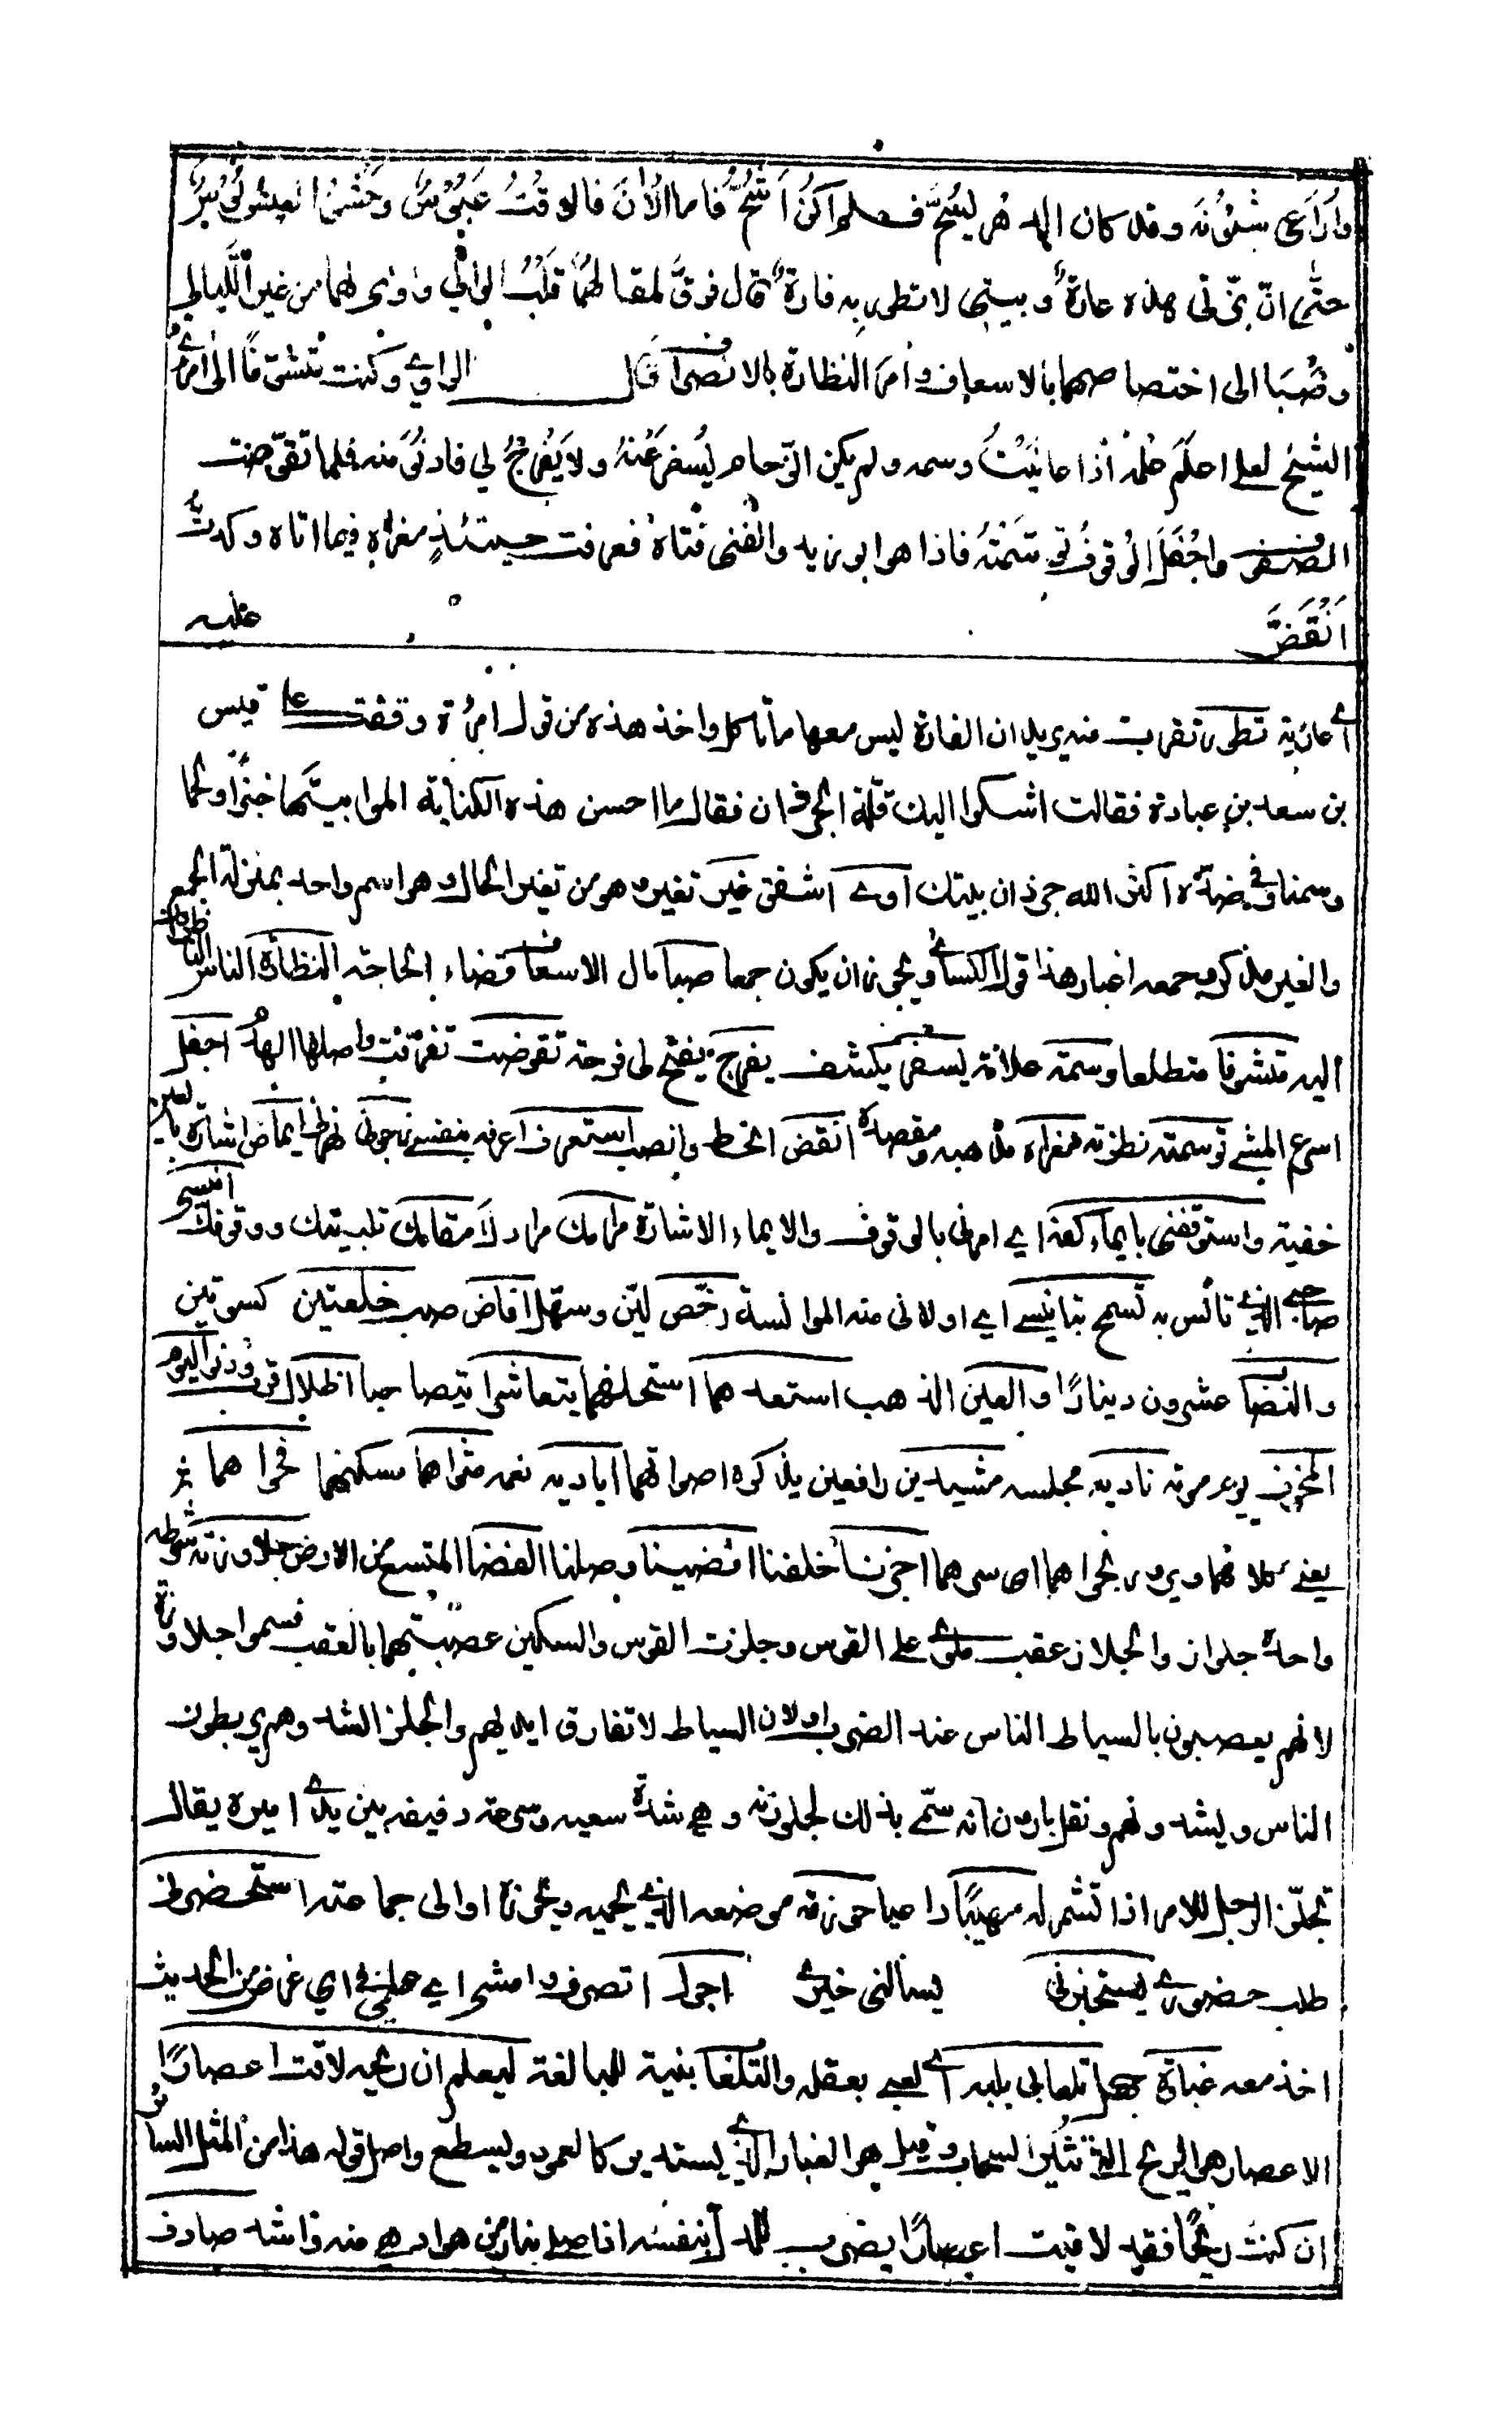 وأراعي شئونه وقد كان الدهر يسحّ فلم أكن أشحّ فاما الآن فالوقت عبوس وحشو العيش بوس
حتى ان بزتي هذه عارة وبيتي لا تطور به فارة قال فرق لمقالهما قلب الوالي وأوى لهما من غير الليالي
وصبا الى اختصاصهما بالاسعاف وأمر النظارة بالانصراف قال الراوي وكنت متشوفا الى مرأى
الشيخ لعلي اعلم علمه اذا عاينت وسمه ولم يكن الزحام يسفر عنه ولا يفرج لي فادنو منه فلما تقوضت
الصفوف واجفل الوقوف توسمته فاذا هو ابو زيد والفتى فتاه فعرفت حينئذ مغزاه فيما اتاه وكدت
انقضّ عليه
اي عارية تطور تقرب منه يريد ان الفارة ليس معها ما تاكل واخذ هذه من قول امرأة وقفت على قيس
بن سعد بن عبادة فقالت اشكوا اليك قلة الجرذان فقال ما احسن هذه الكناية املوا بيتها خبزا ولحما
وسمنا وفي رواية اكثر الله جرذان بيتك اوى اشفق غير تغير وهو من تغير الحال وهو اسم واحد بمنزلة الجمع
والغير مذكر وجمعه اغيار هذا قول الكسائي ويجوز ان يكون جمعا صبا مال الاسعاف قضاء الحاجة النظارة الناس الناظرون
اليه متشوفا متطلعا وسمه علامة يسفر يكشف يفرج يفتح لي فرجة تقوضت تفرقت واصلها الهد اجفل
اسرع المشي توسمته نظرته مغزاه مذهبه ومقصده انقض انحط وانصب استعرف اعرفه بنفسي زجرني نظر ايماض اشارة بالعين
خفية واستوقفني بايماء كفه اي امرني بالوقوف والايماء الاشارة مرامك مرادك مقامك تلبيتك ووقوفك انيسي
صاحبي الذي تانس به تسمح بتانيسه اي اولاني منه الموانسة رخص لين وسهل افاض صب خلعتين كسوتين
والنصاب عشرون دينارا والعين الذهب استعهدهما استحلفهما يتعاشرا يتصاحبا اظلال قرب ودنو اليوم
المخوف يوم موته ناديه مجلسه مشيدين رافعين بذكره اصواتهما اياديه نعمه مثواهما مسكنهما فحواهما
يعني كلامهما ويروى نجواهما اي سرهما اجزنا خلفنا افضينا وصلنا الفضا المتسع من الارض جلاوزته شرطه
واحده جلواز والجلاز عقب ملوي على القوس وجلزت القوس والسكين عصبتهما بالعقب فسموا جلاوزة
لانهم يعصبون بالسياط الناس عند الضرب او لان السياط لا تفارق ايديهم والجلز الشد وهم يربطون
الناس ويشدونهم ونقل انه سمي بذلك لجلوزته وهي شدة سعيه وسرعة دفيفه بين يدي اميره يقال
تجلّز الرجل للامر اذا تشمر له مهيبا داعيا حوزته موضعه الذي يحميه ويحوزه اوالي جماعته استحضرني
طلب حضوري يستخبرني يسالني خبري اجول اتصرف وامشي اي عملي في اي غرض من الحديث
اخذ معه غباوة جهل تلعابي بلبه اي لعبي بعقله والتلعاب بنية للمبالغة ليعلم ان ريحه لاقت اعصارا
الاعصار هو الريح التي تثير السحاب وقيل هو الغبار الذي يستدير كالعمود ويسطع واصل قوله هذا من المثل السائر
ان كنت ريحا فقد لاقيت اعصارا يضرب للمدل بنفسه اذا صلي بنار من هو ادهى منه واشد صادف